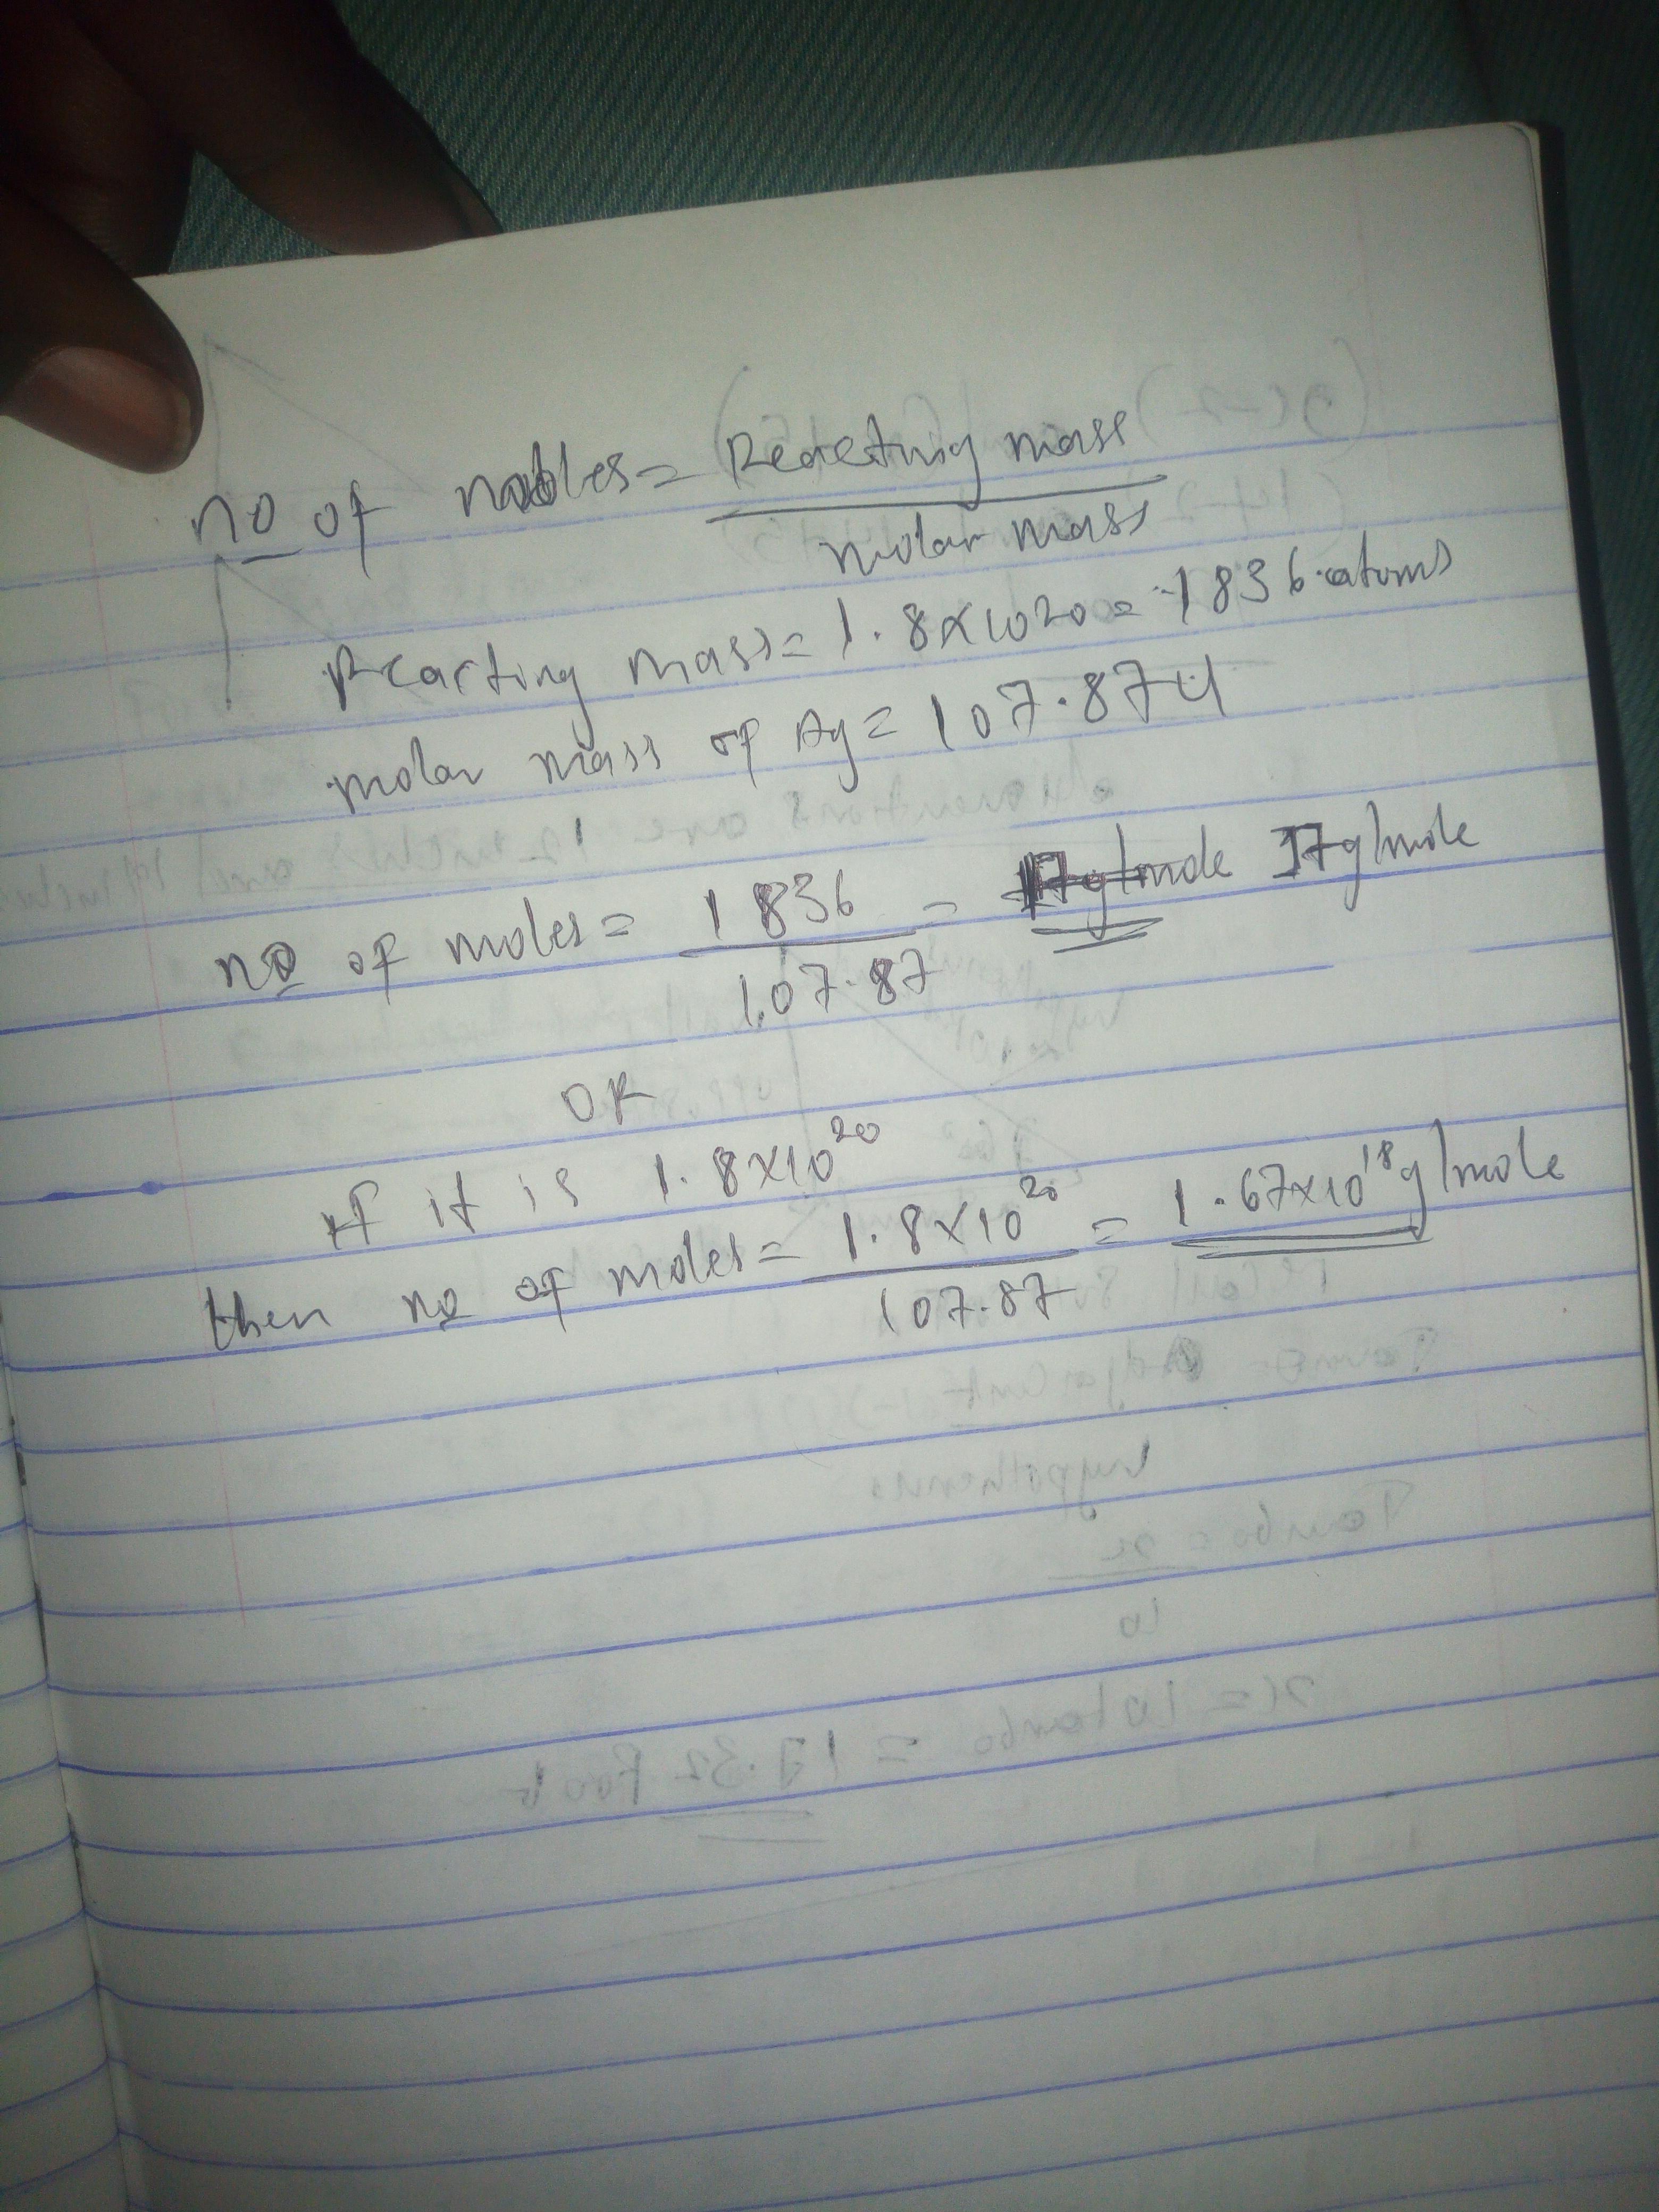 no of moles = Reacting mass
molar mass
Reacting mass = 1.8×1020 = 1836 atoms
molar mass of Ag = 107.87u
no of moles = 1836 = 17g/mole 17g/mole
107.87
OR
If it is 1.8×10²⁰
then no of moles = 1.8×10²⁰ = 1.67×10¹⁸g/mole
107.87